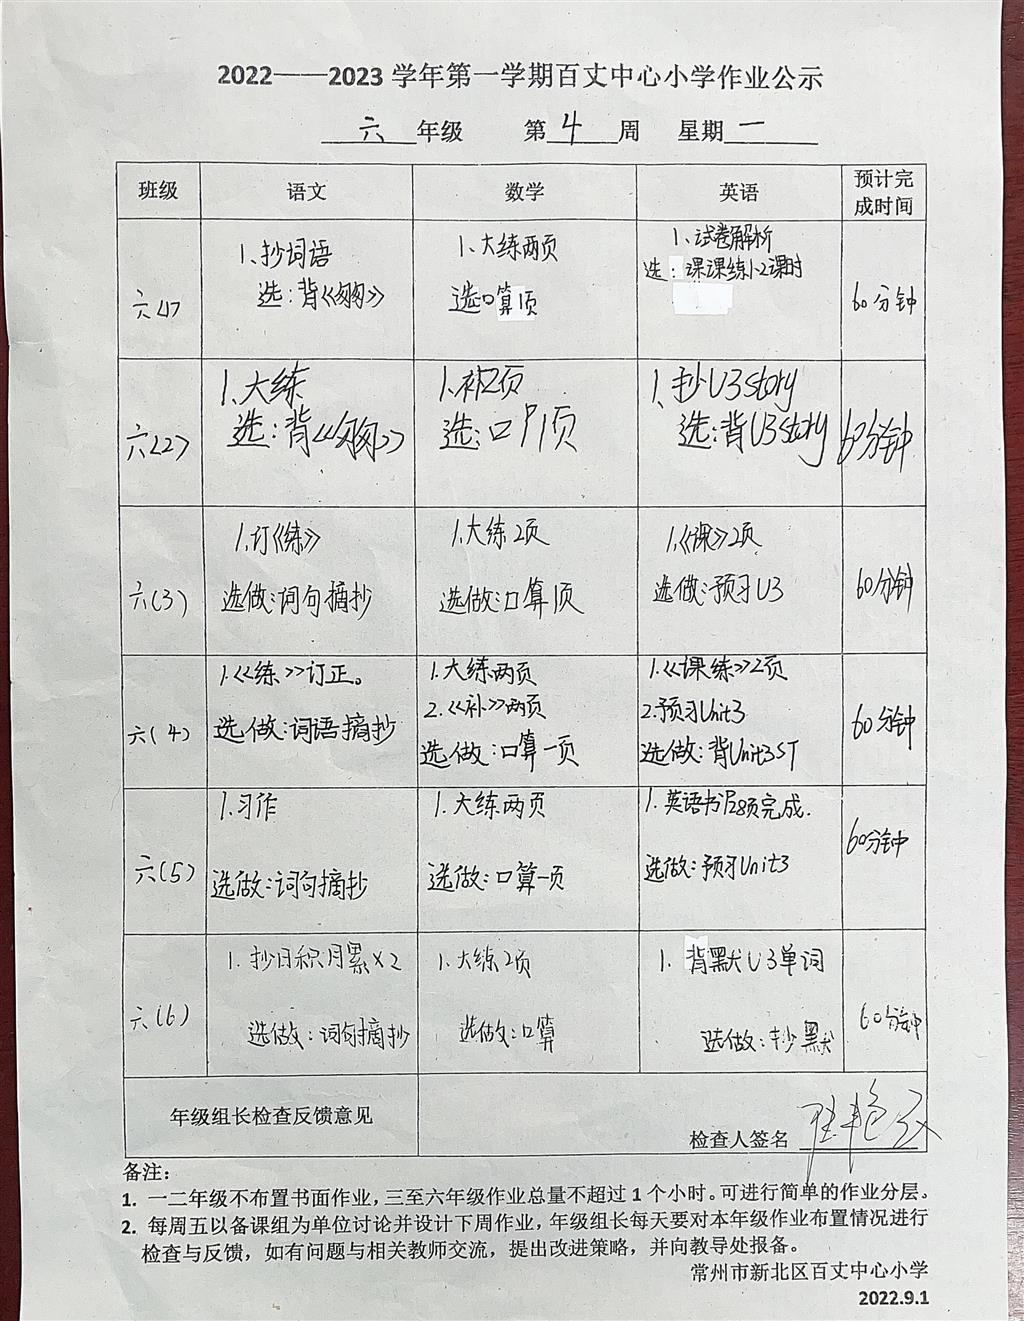 2022——2023 学年第一学期百丈中心小学作业公示
六 年级 第 4 周 星期 一
班级 语文 数学 英语 预计完成时间
六(1)
1、抄词语
选:背《匆匆》
1、大练两页
选口算1页
1、试卷解析
选:课课练1-2课时
60分钟
六(2)
1.大练
选:背《匆匆》
1.补2页
选:口P1页
1、抄U3story
选:背U3story
60分钟
六(3)
1.订《练》
选做:词句摘抄
1.大练2页
选做:口算1页
1.《课》2页
选做:预习U3
60分钟
六(4)
1.《练》订正。
选做:词语摘抄
1.大练两页
2.《补》两页
选做:口算一页
1.《课练》2页
2.预习Unit3
选做:背Unit3ST
60分钟
六(5)
1.习作
选做:词句摘抄
1.大练两页
选做:口算一页
1.英语书P28页完成.
选做:预习Unit3
60分钟
六(6)
1.抄日积月累×2
选做:词句摘抄
1.大练2页
选做:口算
1.背默U3单词
选做:抄默
60分钟
年级组长检查反馈意见
检查人签名
备注:
1. 一二年级不布置书面作业,三至六年级作业总量不超过 1 个小时。可进行简单的作业分层。
2. 每周五以备课组为单位讨论并设计下周作业,年级组长每天要对本年级作业布置情况进行
检查与反馈,如有问题与相关教师交流,提出改进策略,并向教导处报备。
常州市新北区百丈中心小学
2022.9.1